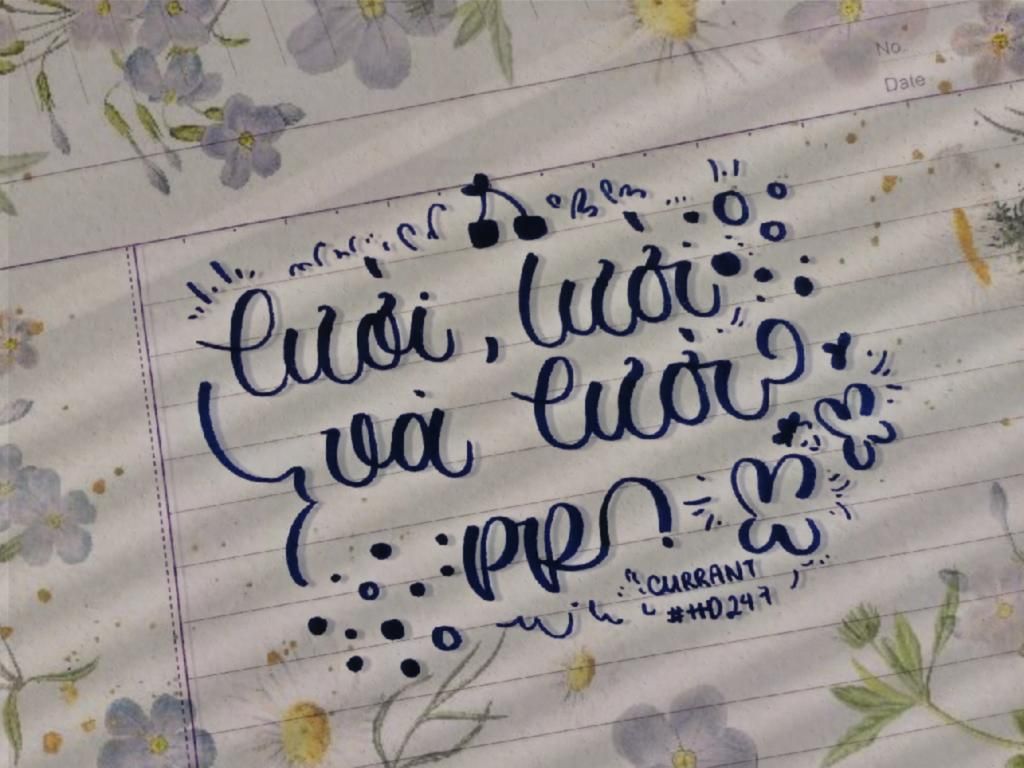 No.
Date
lười, lười
và lười
ppn
CURRANT
#HD247